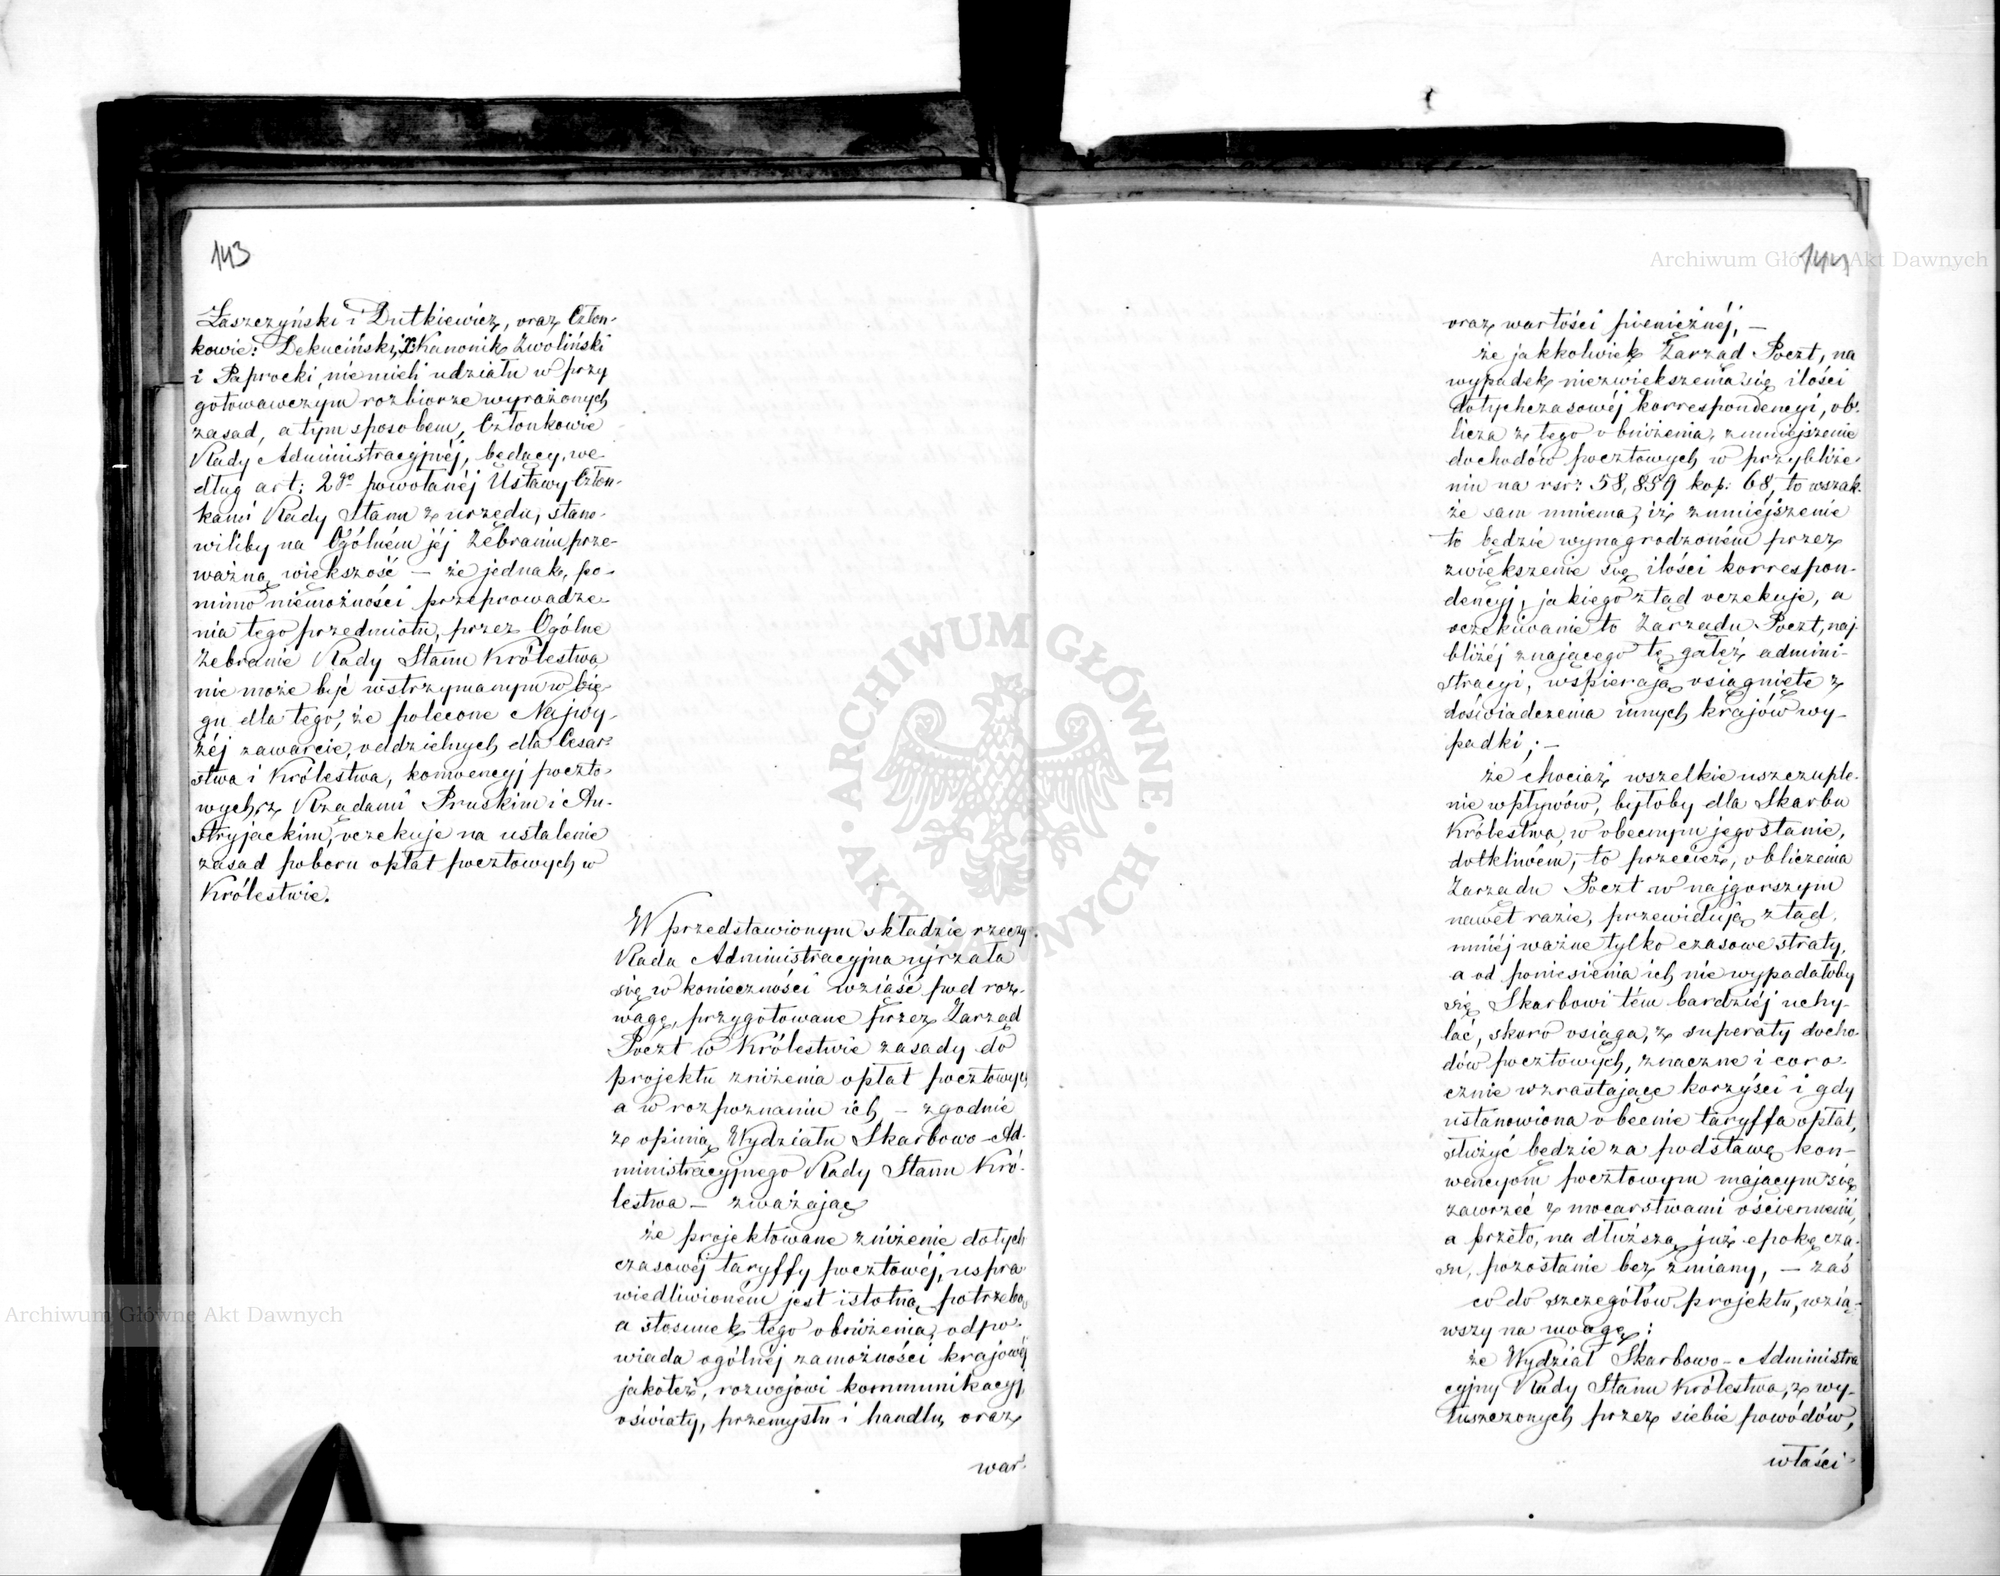 143
Łaszczyński i Dutkiewicz, oraz Człon-
kowie: Dekuciński, X Kanonik Zwoliński
i Paprocki, nie mieli udziału w przy
gotowawczym rozbiorze wyrażonych
zasad, a tym sposobem, Członkowie
Rady Administracyjnéj, będący, we
dług art: 2go powołanéj Ustawy Człon-
kami Rady Stanu z urzędu, stano-
wiliby na Ogólném jéj Zebraniu prze-
ważną większość — że jednak, po-
mimo niemożności przeprowadze-
nia tego przedmiotu, przez Ogólne
Zebranie Rady Stanu Królestwa,
nie może być wstrzymanym w bie-
gu dla tego, że polecone Najwy-
żéj zawarcie, oddzielnych dla Cesar-
stwa i Królestwa, konwencyj poczto-
wych, z Rządami Pruskim i Au-
stryjackim, oczekuje na ustalenie
zasad poboru opłat pocztowych w
Królestwie.
W przedstawionym składzie rzeczy
Rada Administracyjna ujrzała
się w konieczności wziąść pod roz-
wagę, przygotowane przez Zarząd
Poczt w Królestwie zasady do
projektu zniżenia opłat pocztowych
a w rozpoznaniu ich, — zgodnie
z opinią Wydziału Skarbowo-Ad-
ministracyjnego Rady Stanu Kró-
lestwa — zważając
że projektowane zniżenie dotych
czasowéj taryffy pocztowéj, uspra
wiedliwioném jest istotną potrzebą,
a stosunek tego obniżenia, odpo-
wiada ogólnéj zamożności krajowéj
jakotéż, rozwojowi kommunikacyj,
oświaty, przemysłu i handlu, oraz
war-
144
oraz wartości pieniężnéj, —
że jakkolwiek Zarząd Poczt, na
wypadek niezwiększenia się ilości
dotychczasowéj korrespondencyi, ob-
licza z tego obniżenia, zmniejszenie
dochodów pocztowych w przybliże-
niu na rsr: 58,859 kop: 68, to wszak-
że sam mniema, iż zmniejszenie
to będzie wynagrodzoném przez
zwiększenie się ilości korrespon-
dencyj, jakiego ztąd oczekuje, a
oczekiwanie to Zarządu Poczt, naj-
bliżéj znającego tę gałęź admini-
stracyi, wspierają osiągnięte z
doświadczenia innych krajów wy-
padki; —
że chociaż wszelkie uszczuple-
nie wpływów, byłoby dla Skarbu
Królestwa, w obecnym jego stanie,
dotkliwém, to przecież, obliczenia
Zarządu Poczt w najgorszym
nawet razie, przewidują ztąd,
mniéj ważne tylko czasowe straty,
a od poniesienia ich nie wypadałoby
się Skarbowi tém bardziéj uchy-
lać, skoro osiąga, z superaty docho-
dów pocztowych, znaczne i coro-
cznie wzrastające korzyści i gdy
ustanowiona obecnie taryffa opłat,
służyć będzie za podstawę kon-
wencyom pocztowym mającym się
zawrzeć z mocarstwami ościennemi,
a przeto, na dłuższą już epokę cza-
su, pozostanie bez zmiany, — zaś
co do szczegółów projektu, wzią-
wszy na uwagę:
że Wydział Skarbowo-Administra
cyjny Rady Stanu Królestwa, z wy-
łuszczonych przez siebie powodów,
właści-
Archiwum Główne Akt Dawnych
Archiwum Główne Akt Dawnych
ARCHIWUM GŁÓWNE
AKT DAWNYCH